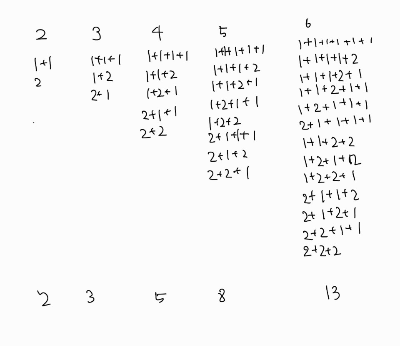 2
1+1
2
3
1+1+1
1+2
2+1
4
1+1+1+1
1+1+2
1+2+1
2+1+1
2+2
5
1+1+1+1+1
1+1+1+2
1+1+2+1
1+2+1+1
1+2+2
2+1+1+1
2+1+2
2+2+1
6
1+1+1+1+1+1
1+1+1+1+2
1+1+1+2+1
1+1+2+1+1
1+2+1+1+1
2+1+1+1+1
1+1+2+2
1+2+1+2
1+2+2+1
2+1+1+2
2+1+2+1
2+2+1+1
2+2+2
2 3 5 8 13